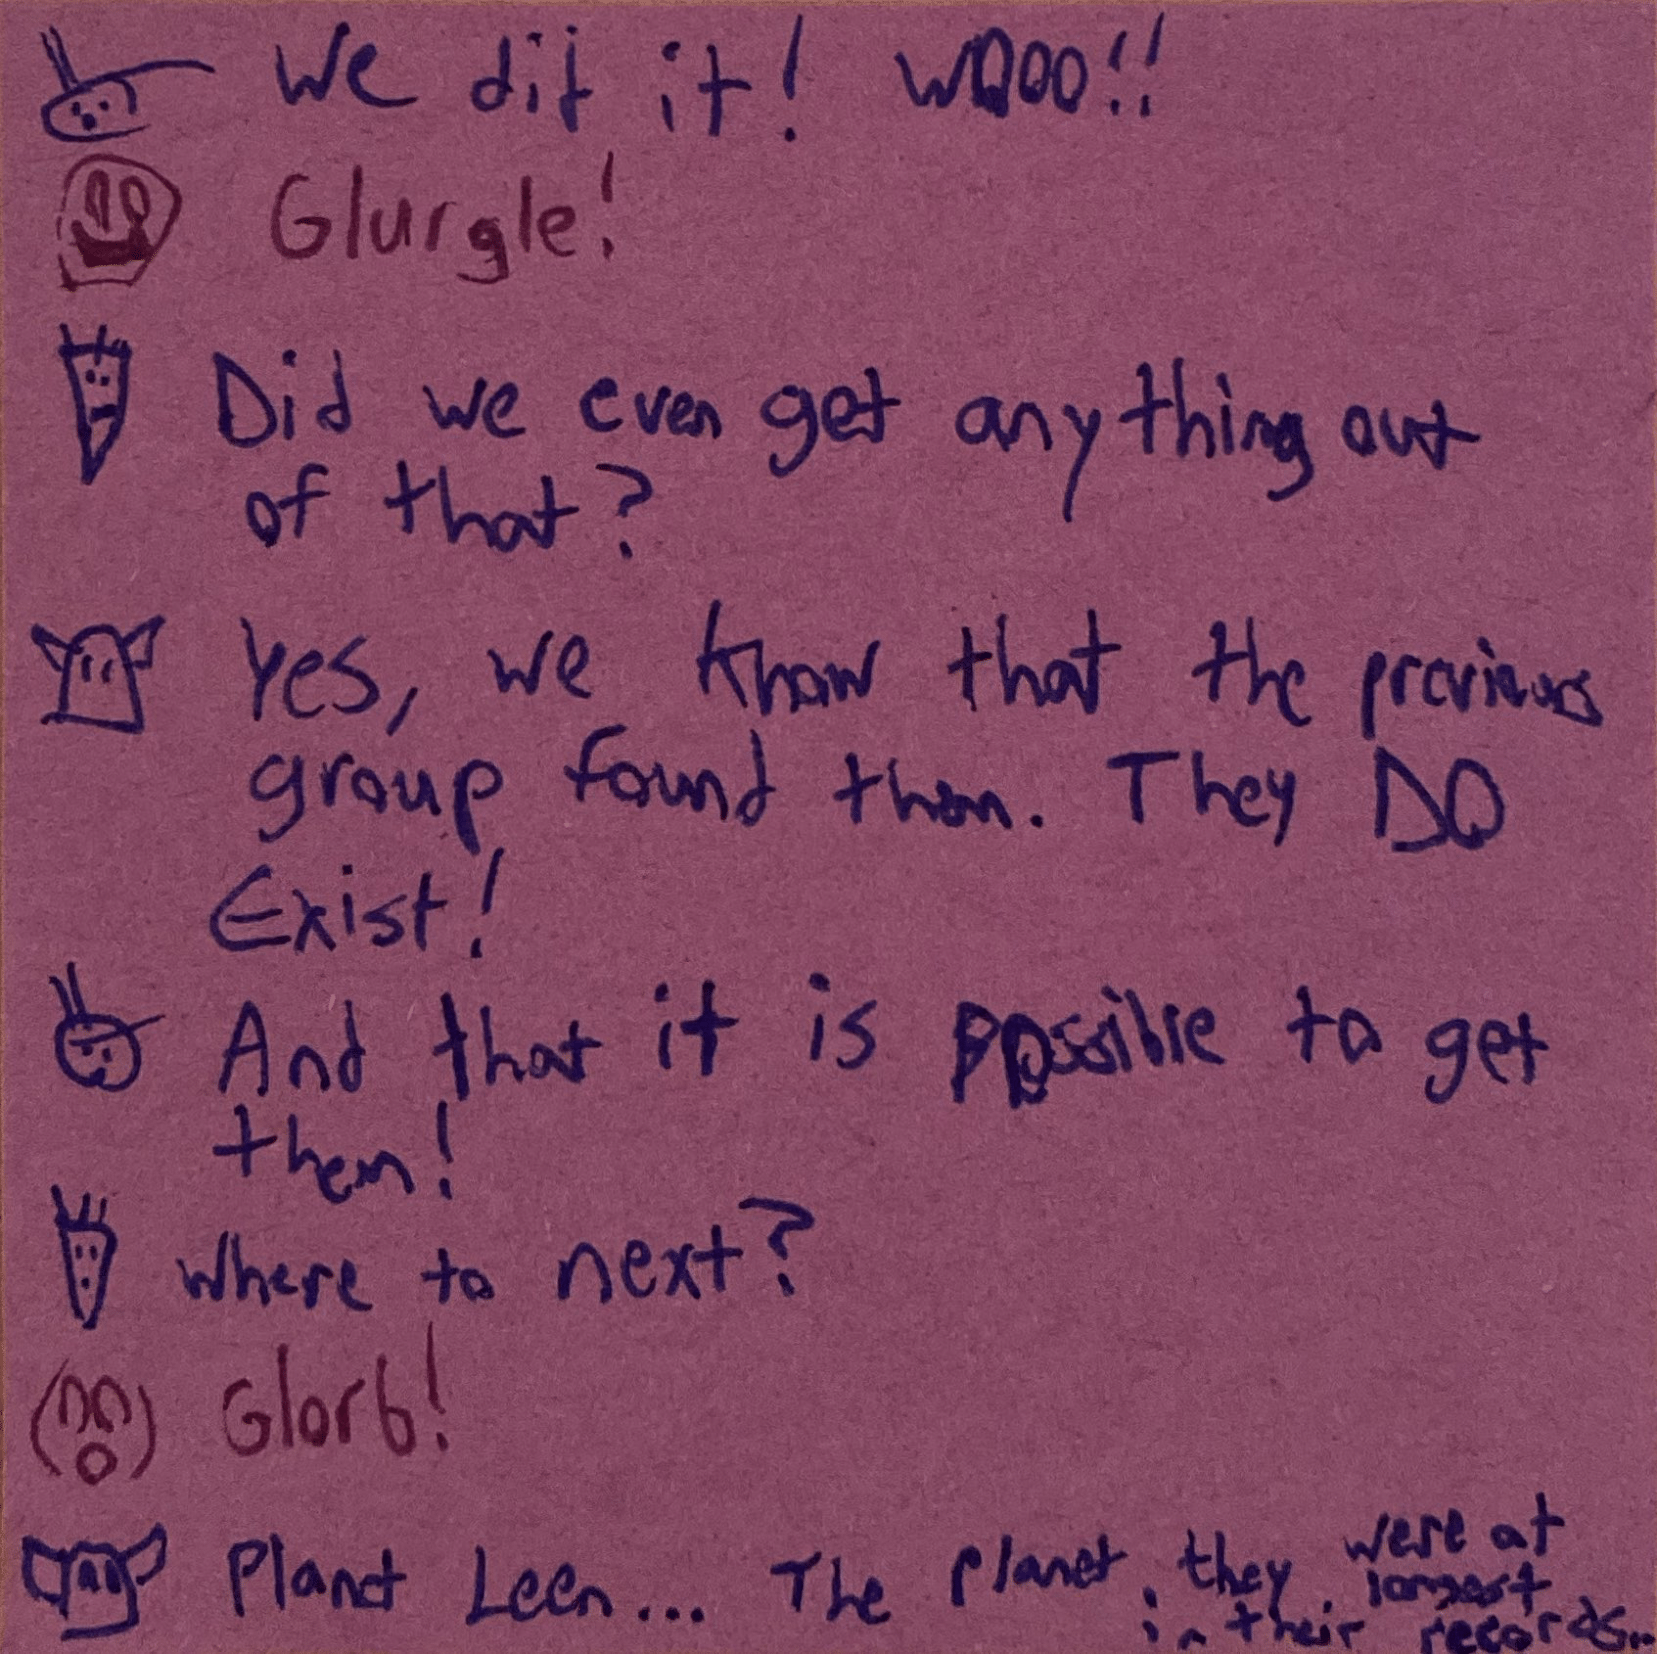 We dit it! WOOO!!
Glurgle!
Did we even get anything out
of that?
Yes, we know that the previous
group found them. They DO
Exist!
And that it is possible to get
them!
where to next?
Glorb!
Planet Leen... The planet they were at
longest
in their records...